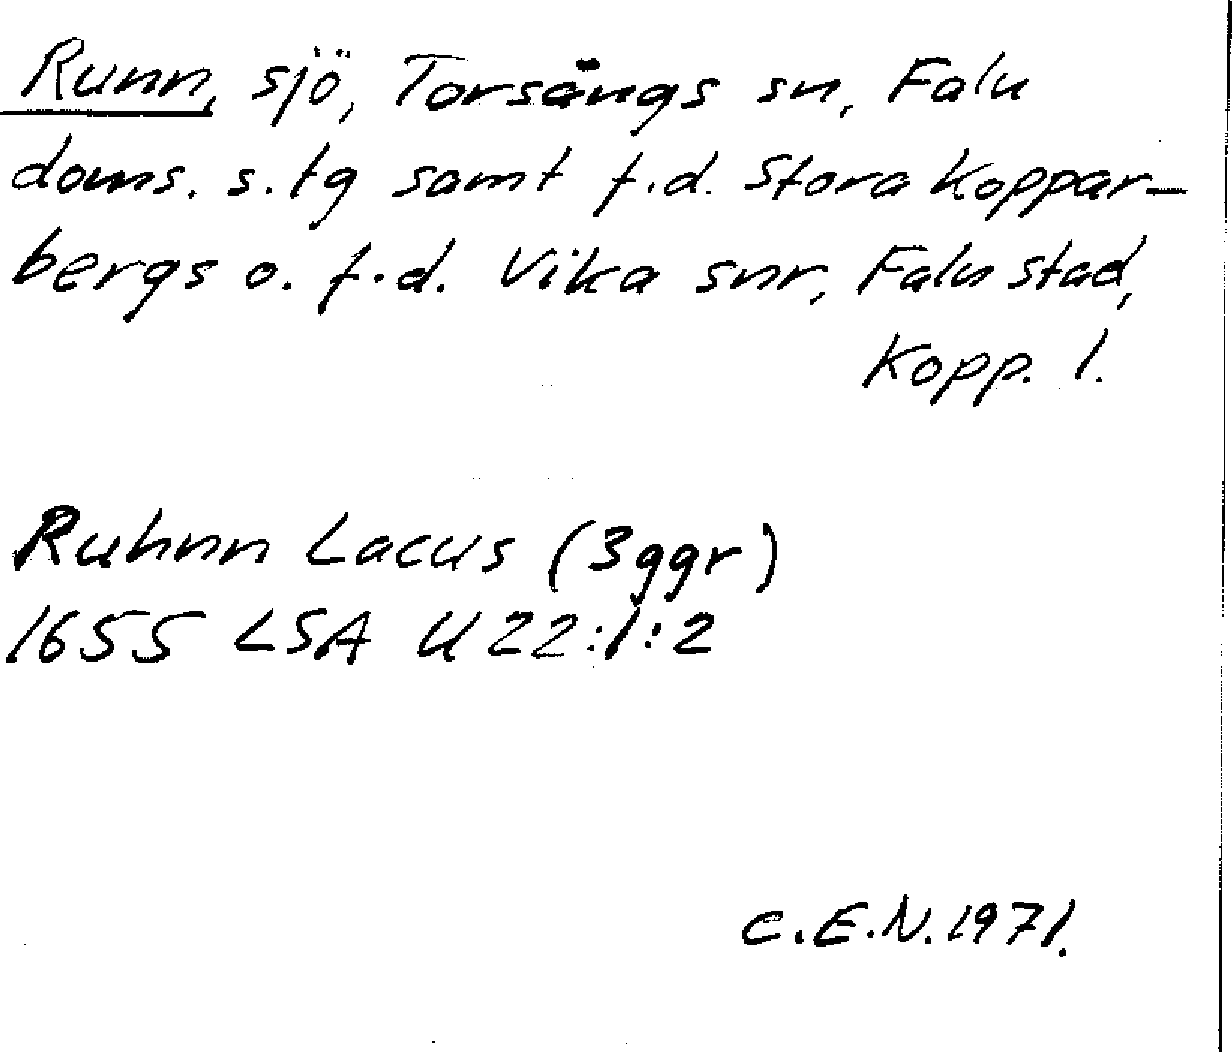 Runn, sjö, Torsångs sn, Falu
doms. s. tg samt f.d. Stora Koppar-
bergs o. f.d. Vika snr, Falu stad,
Kopp. l.
Ruhnn Lacus (3ggr)
1655 LSA U 22:1:2
C.E.N. 1971.